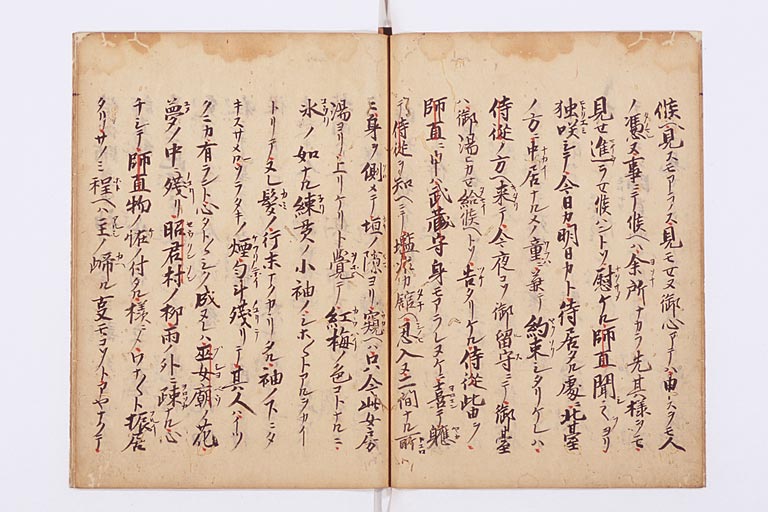 候見スモアラス見モセヌ御心アテハ申ニスヲモ人
ノ憑ヌ事ニテ候ヘハ余所ナカラ先其様ヲモ
見セ進ラセ候ハントソ慰ケル師直聞之ヨリ
独咲シテ今日カ明日カト待居タル処ニ北台
ノ方ニ中居ナルメノ童ニ兼テ約束シタリケレハ
侍従ノ方ヘ来テ今夜コソ御留守ニテ御台
ハ御湯ヒカセ給候ヘトソ告タリケル侍従此由ヲ
師直ニ申ハ武蔵守身モアラレヌケニ喜テ軈
テ侍従ヲ知ヘニテ塩冶カ館ヘ忍入ヌ二間ナル所
ニ身ヲ側メテ垣ノ隙ヨリ窺ヘハ只今此女房
湯ヨリ上リケリト覚テ紅梅ノ色コトナルニ
氷ノ如ナル練貫ノ小袖ノシホ〱トアルヲカイ
トリテヌレ髪ノ行末ナカクカヽリタル袖ノ下ニタ
キスサメルソラタキノ煙匂計残リテ其人ハイツ
クニカ有ラント心タト〱シク成ヌレハ巫女廟ノ花
夢ノ中ニ残リ昭君村ノ柳雨ノ外ニ疎ナル心
チシテ師直物ノ怪ノ付タル様ニワナ〱ト振居
タリサノミ程ヘハ主ノ帰ル事モコソトアヤナクテ